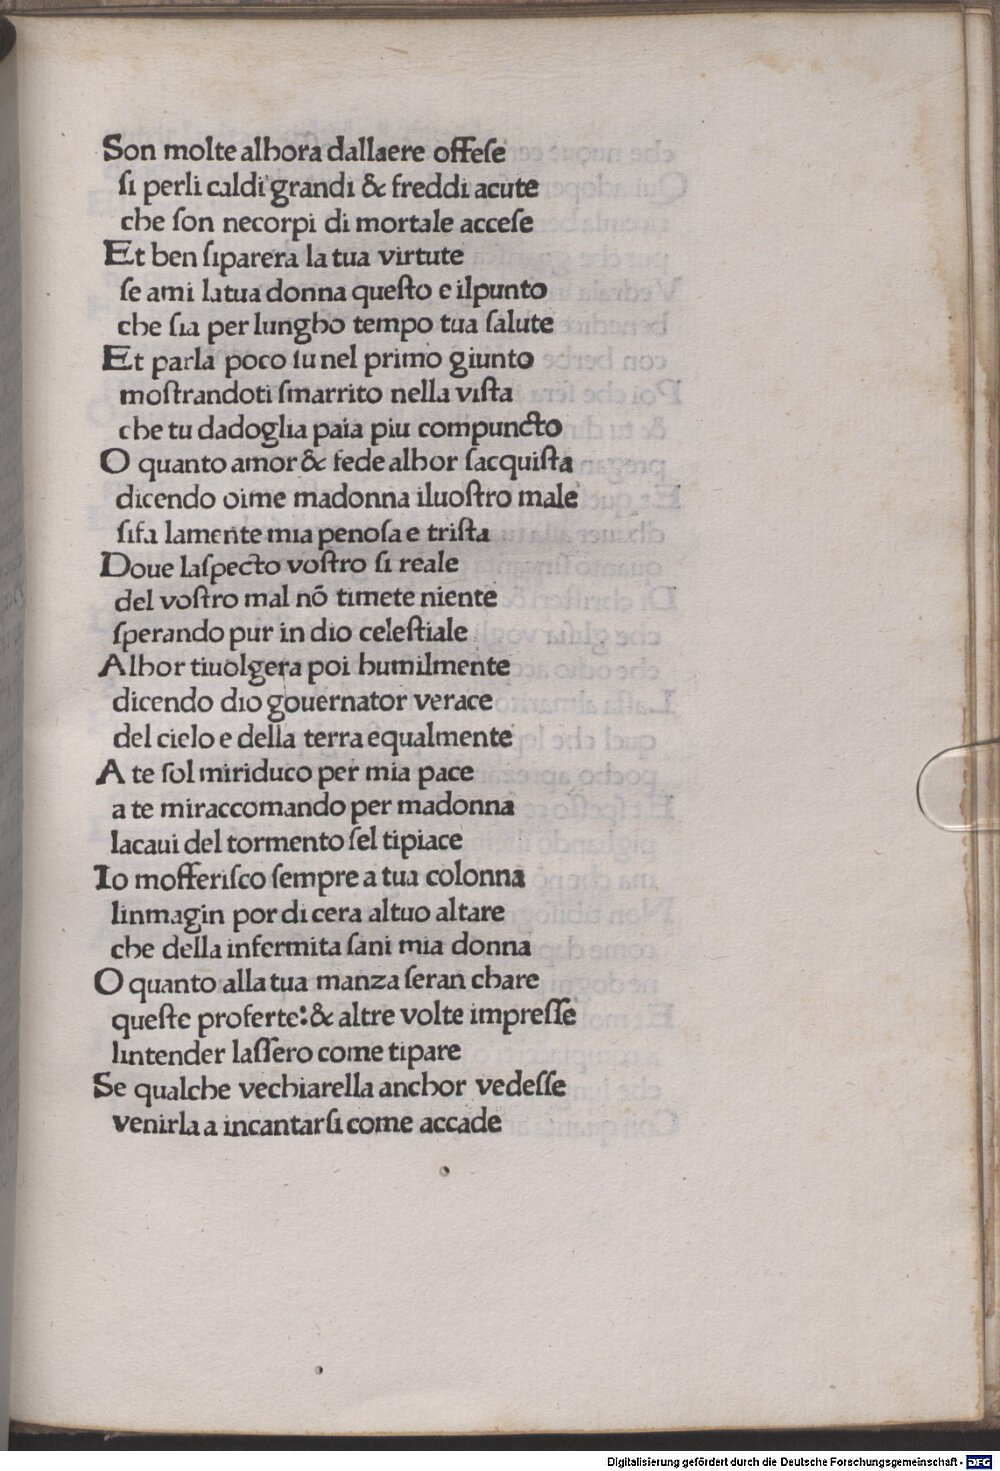 Son molte alhora dallaere offeſe
ſi perli caldi grandi & freddi acute
che ſon necorpi di mortale acceſe
Et ben ſiparera la tua virtute
ſe ami latua donna queſto e ilpunto
che ſia per lungho tempo tua ſalute
Et parla poco ſu nel primo giunto
moſtrandoti ſmarrito nella viſta
che tu dadoglia paia piu compuncto
O quanto amor & fede alhor ſacquiſta
dicendo oime madonna iluoſtro male
ſifa lamente mia penoſa e triſta
Doue laſpecto voſtro ſi reale
del voſtro mal nō timete niente
ſperando pur in dio celeſtiale
Alhor tiuolgera poi humilmente
dicendo dio gouernator verace
del cielo e della terra equalmente
A te ſol miriduco per mia pace
a te miraccomando per madonna
lacaui del tormento ſel tipiace
Io mofferiſco ſempre a tua colonna
linmagin por di cera altuo altare
che della infermita ſani mia donna
O quanto alla tua manza ſeran chare
queſte proferte: & altre volte impreſſe
lintender laſſero come tipare
Se qualche vechiarella anchor vedeſſe
venirla a incantarſi come accade
Digitalisierung gefördert durch die Deutsche Forschungsgemeinschaft - DFG